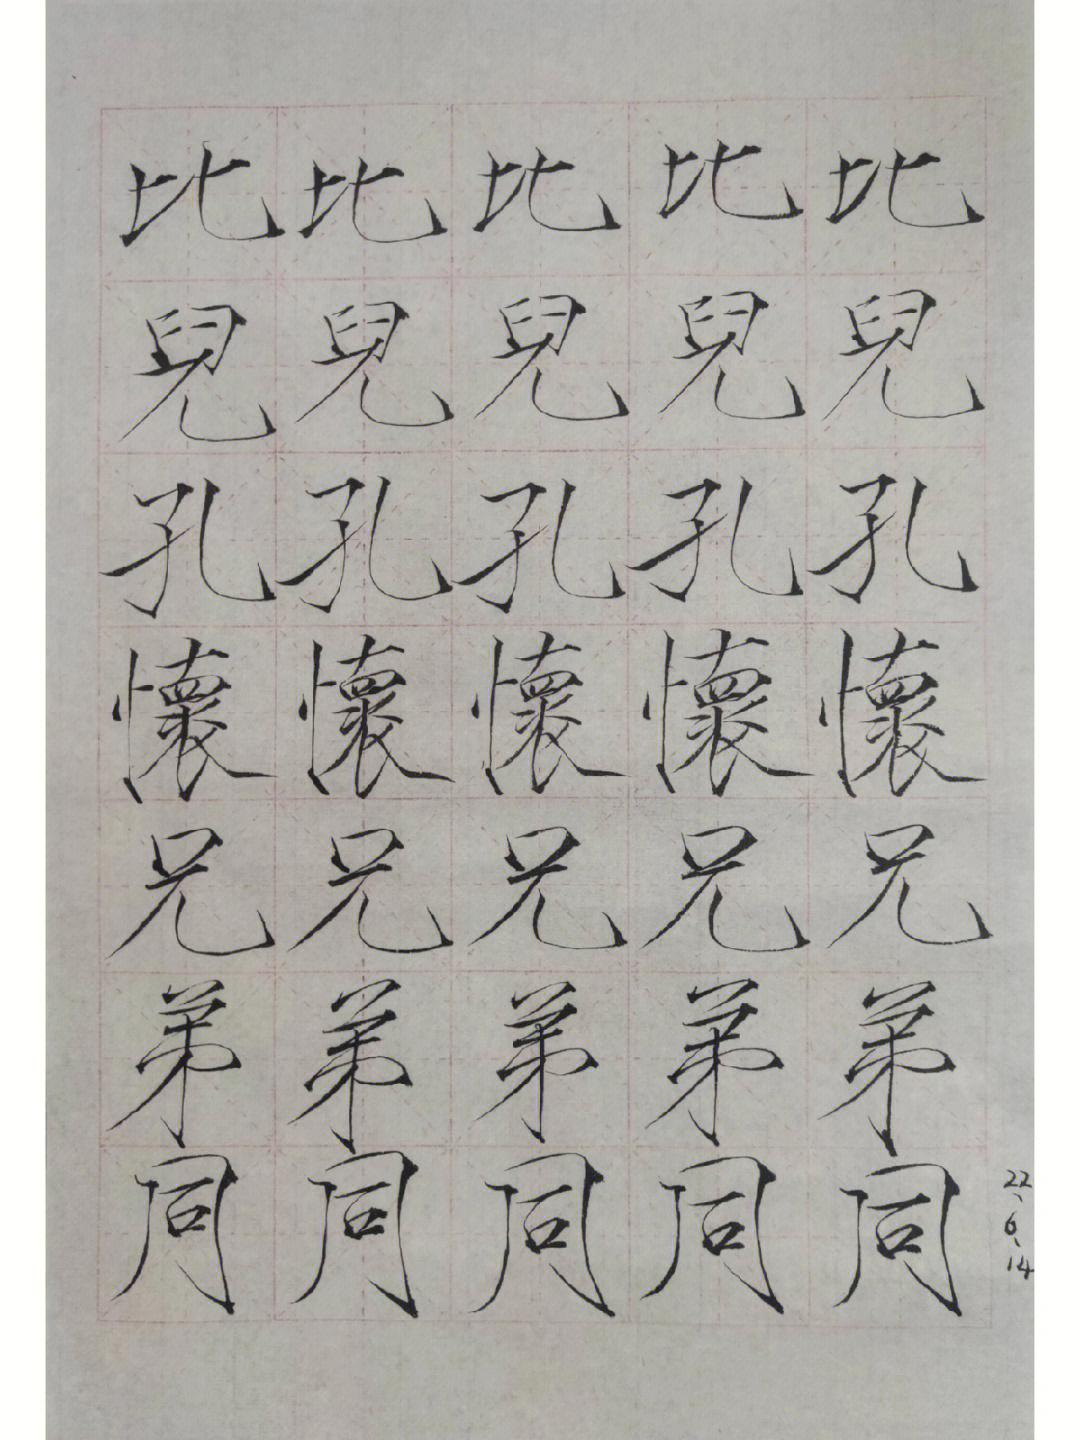 比比比比比
兒兒兒兒兒
孔孔孔孔孔
懷懷懷懷懷
兄兄兄兄兄
弟弟弟弟弟
同同同同同
22、6、14